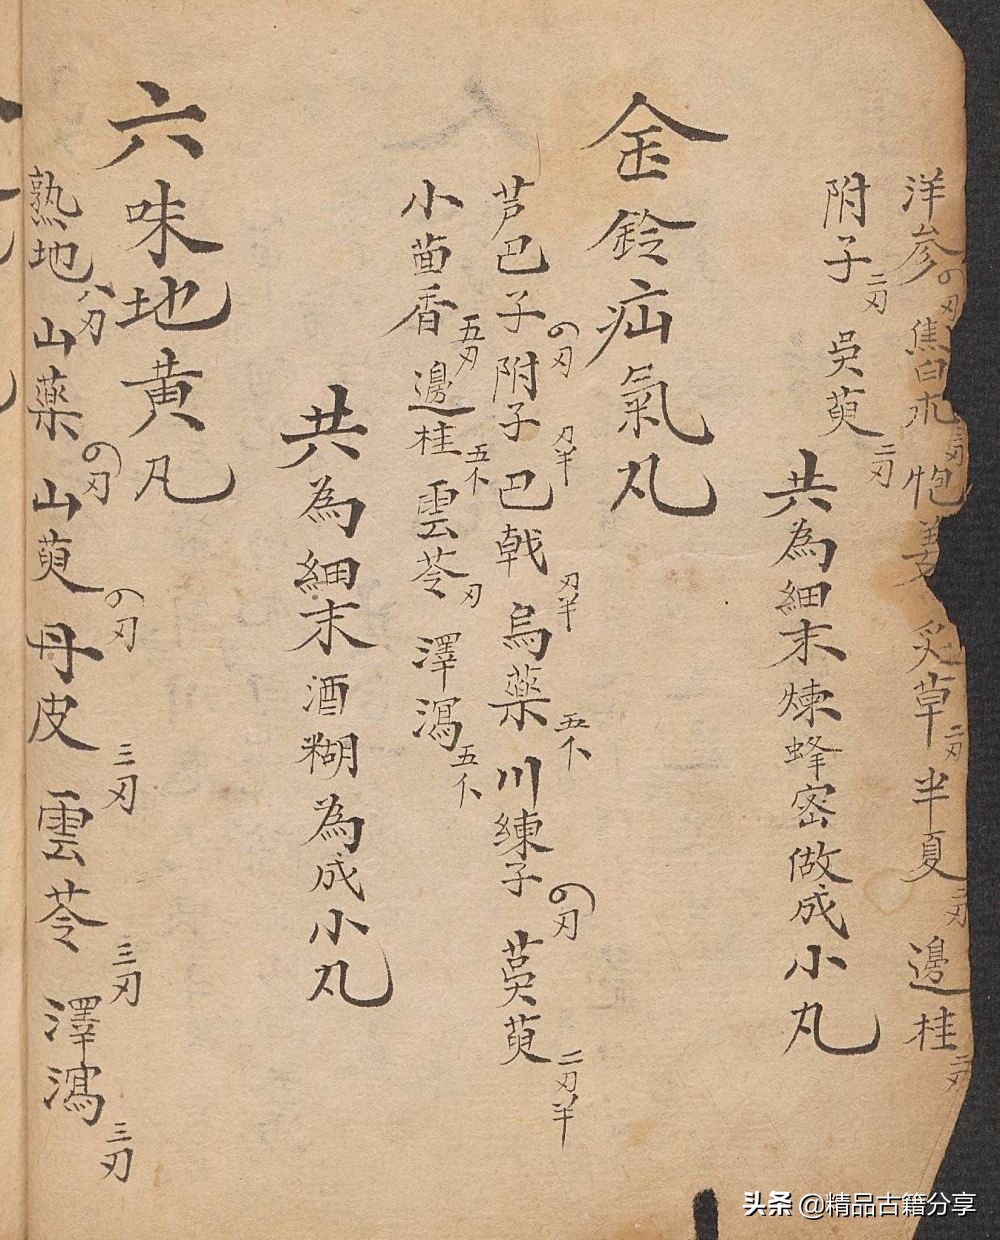 洋参の刃焦白朮三刃怉姜炙草二刃半夏二刃邊桂二刃
附子二刃吳萸二刃
共為細末煉蜂密做成小丸
金鈴疝氣丸
芦巴子の刃附子刀半巴戟刃半烏藥五个川練子の刃萸萸二刃半
小茴香五刃邊桂五个雲苓刃澤瀉五个
共為細末酒糊為成小丸
六味地黄丸
熟地八刃山藥の刃山萸の刃丹皮三刃雲苓三刃澤瀉三刃
头条 @精品古籍分享